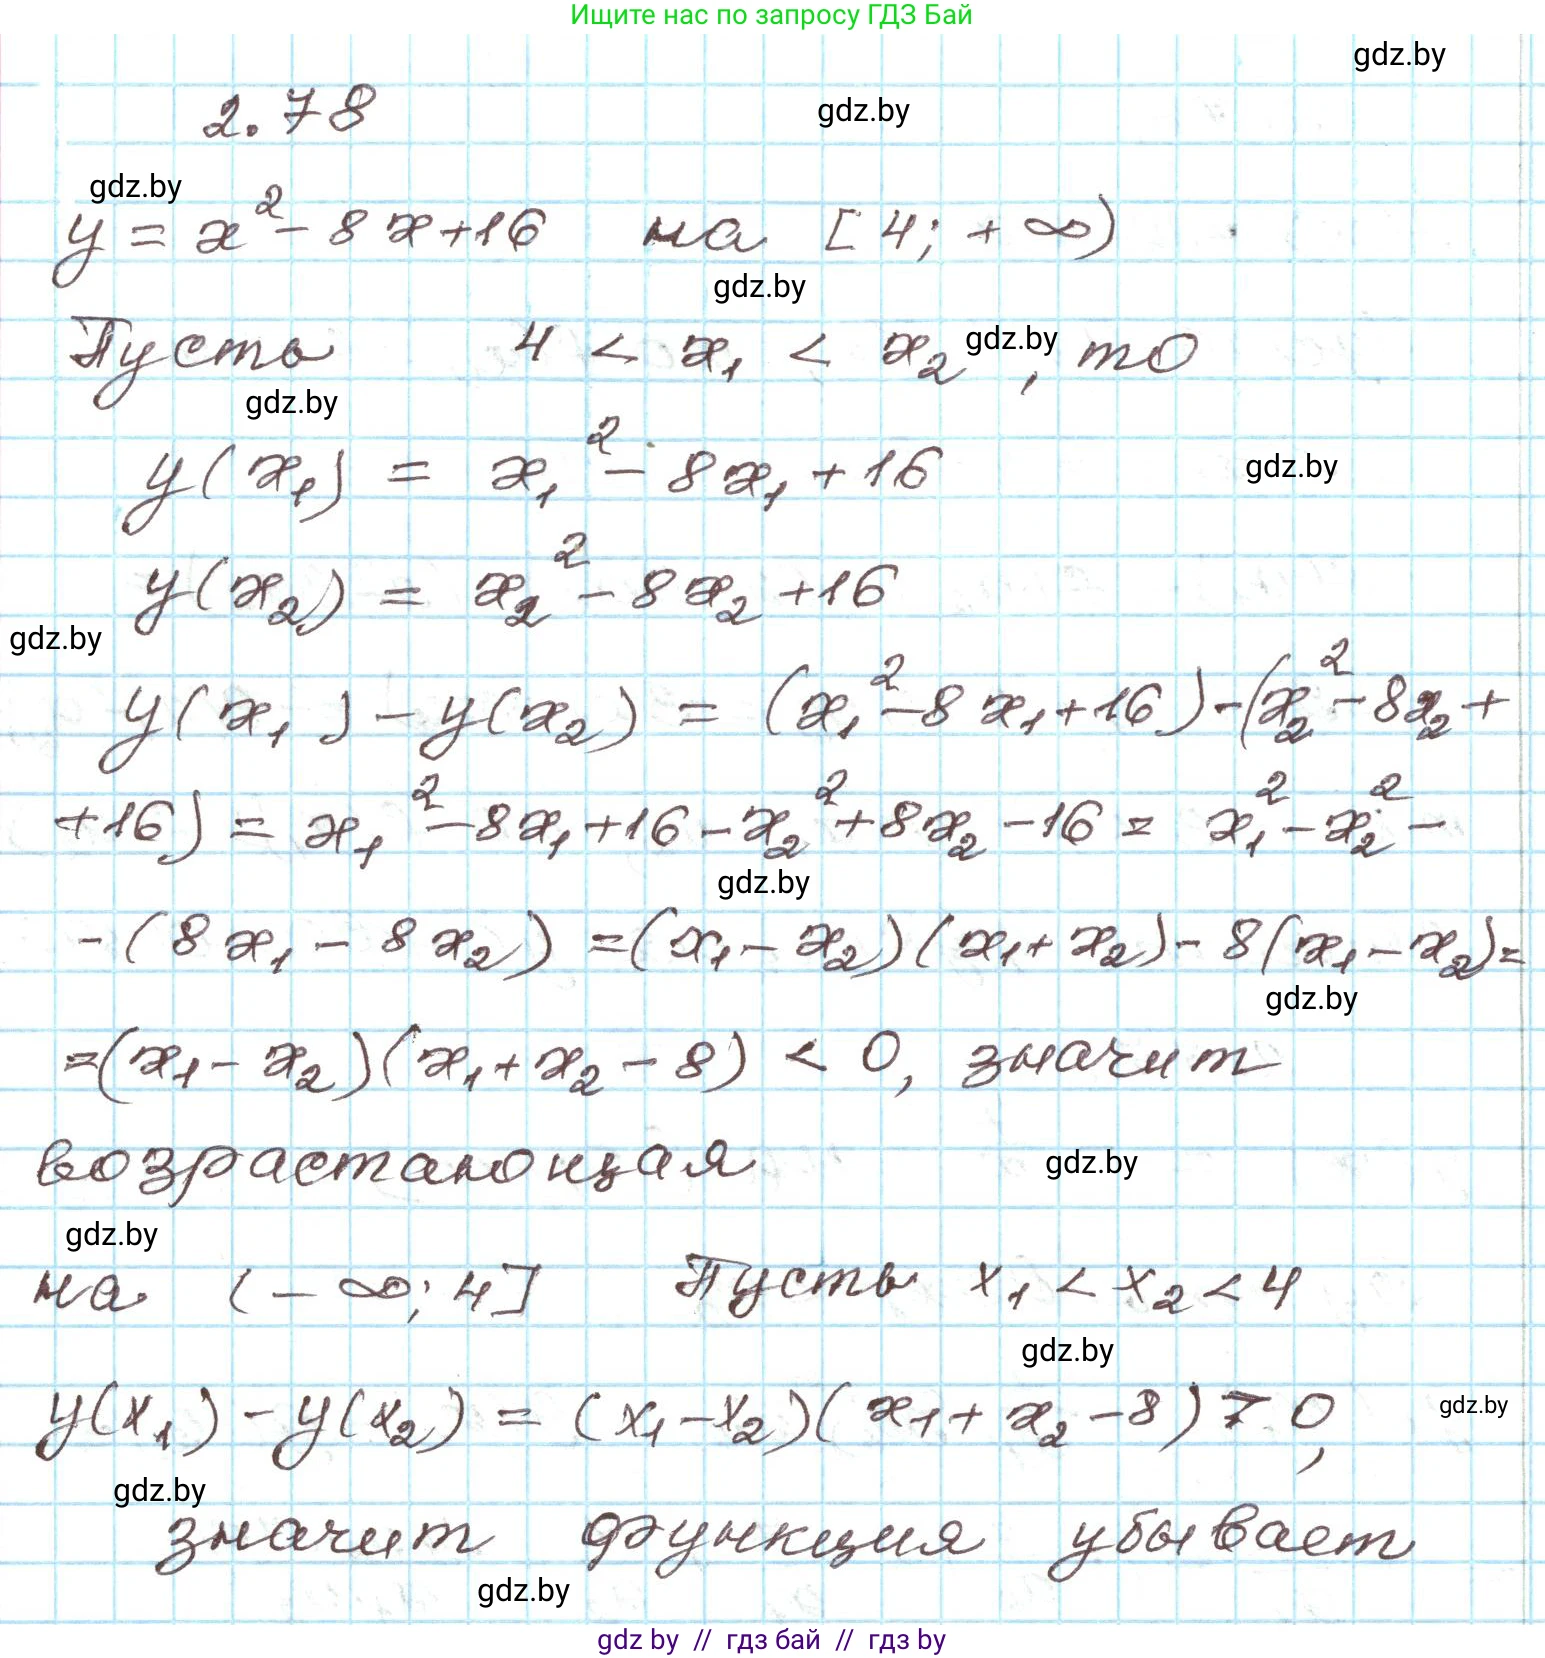 Ищите нас по запросу ГДЗ Бай
gdz.by
2.78
gdz.by
gdz.by
y = x² - 8x + 16 на [4; +∞)
gdz.by
Пусть 4 < x₁ < x₂, то
gdz.by
gdz.by
y(x₁) = x₁² - 8x₁ + 16
gdz.by
y(x₂) = x₂² - 8x₂ + 16
gdz.by
y(x₁) - y(x₂) = (x₁² - 8x₁ + 16) - (x₂² - 8x₂ +
+ 16) = x₁² - 8x₁ + 16 - x₂² + 8x₂ - 16 = x₁² - x₂² -
gdz.by
- (8x₁ - 8x₂) = (x₁ - x₂)(x₁ + x₂) - 8(x₁ - x₂) =
gdz.by
= (x₁ - x₂)(x₁ + x₂ - 8) < 0, значит
возрастающая
gdz.by
gdz.by
на (-∞; 4] Пусть x₁ < x₂ < 4
gdz.by
y(x₁) - y(x₂) = (x₁ - x₂)(x₁ + x₂ - 8) > 0,
gdz.by
gdz.by
значит функция убывает
gdz.by
gdz by // гдз бай // гдз by